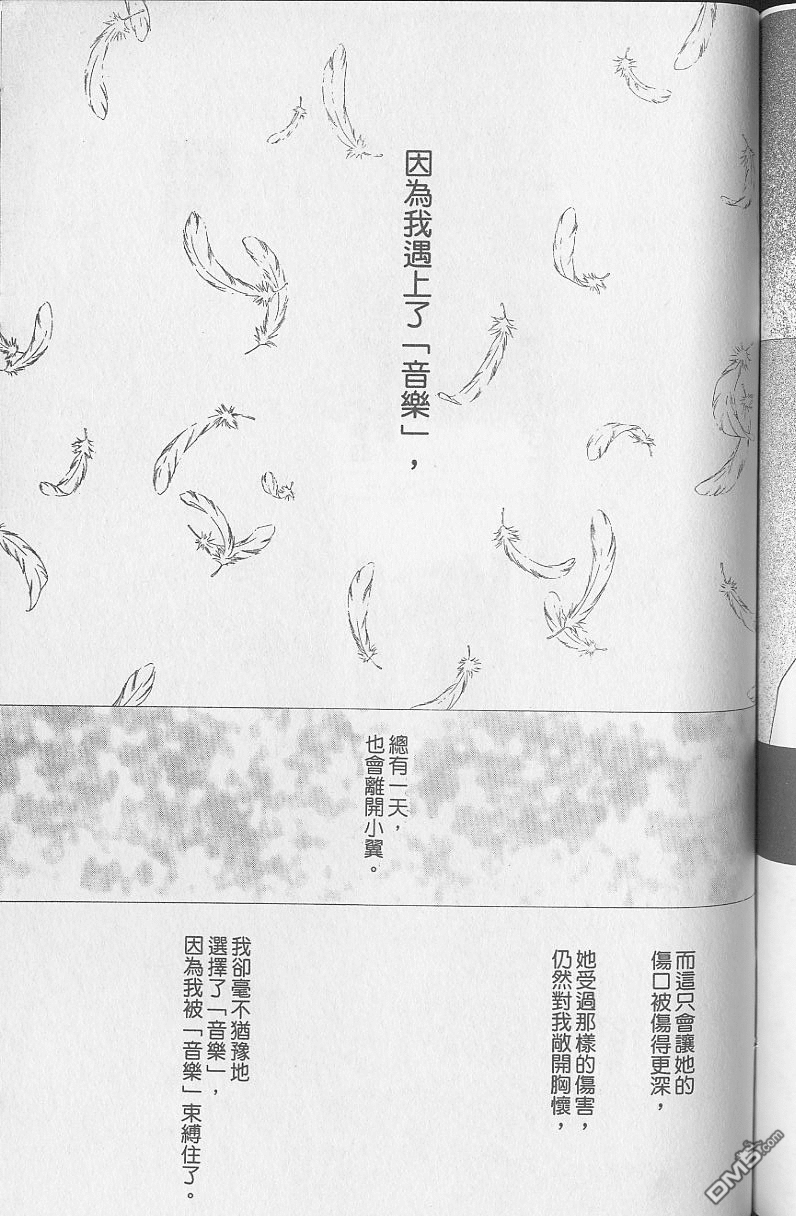 因為我遇上了「音樂」，
總有一天，
也會離開小翼。
而這只會讓她的
傷口被傷得更深，
她受過那樣的傷害，
仍然對我敞開胸懷，
我卻毫不猶豫地
選擇了「音樂」，
因為我被「音樂」束縛住了。
DM5.com